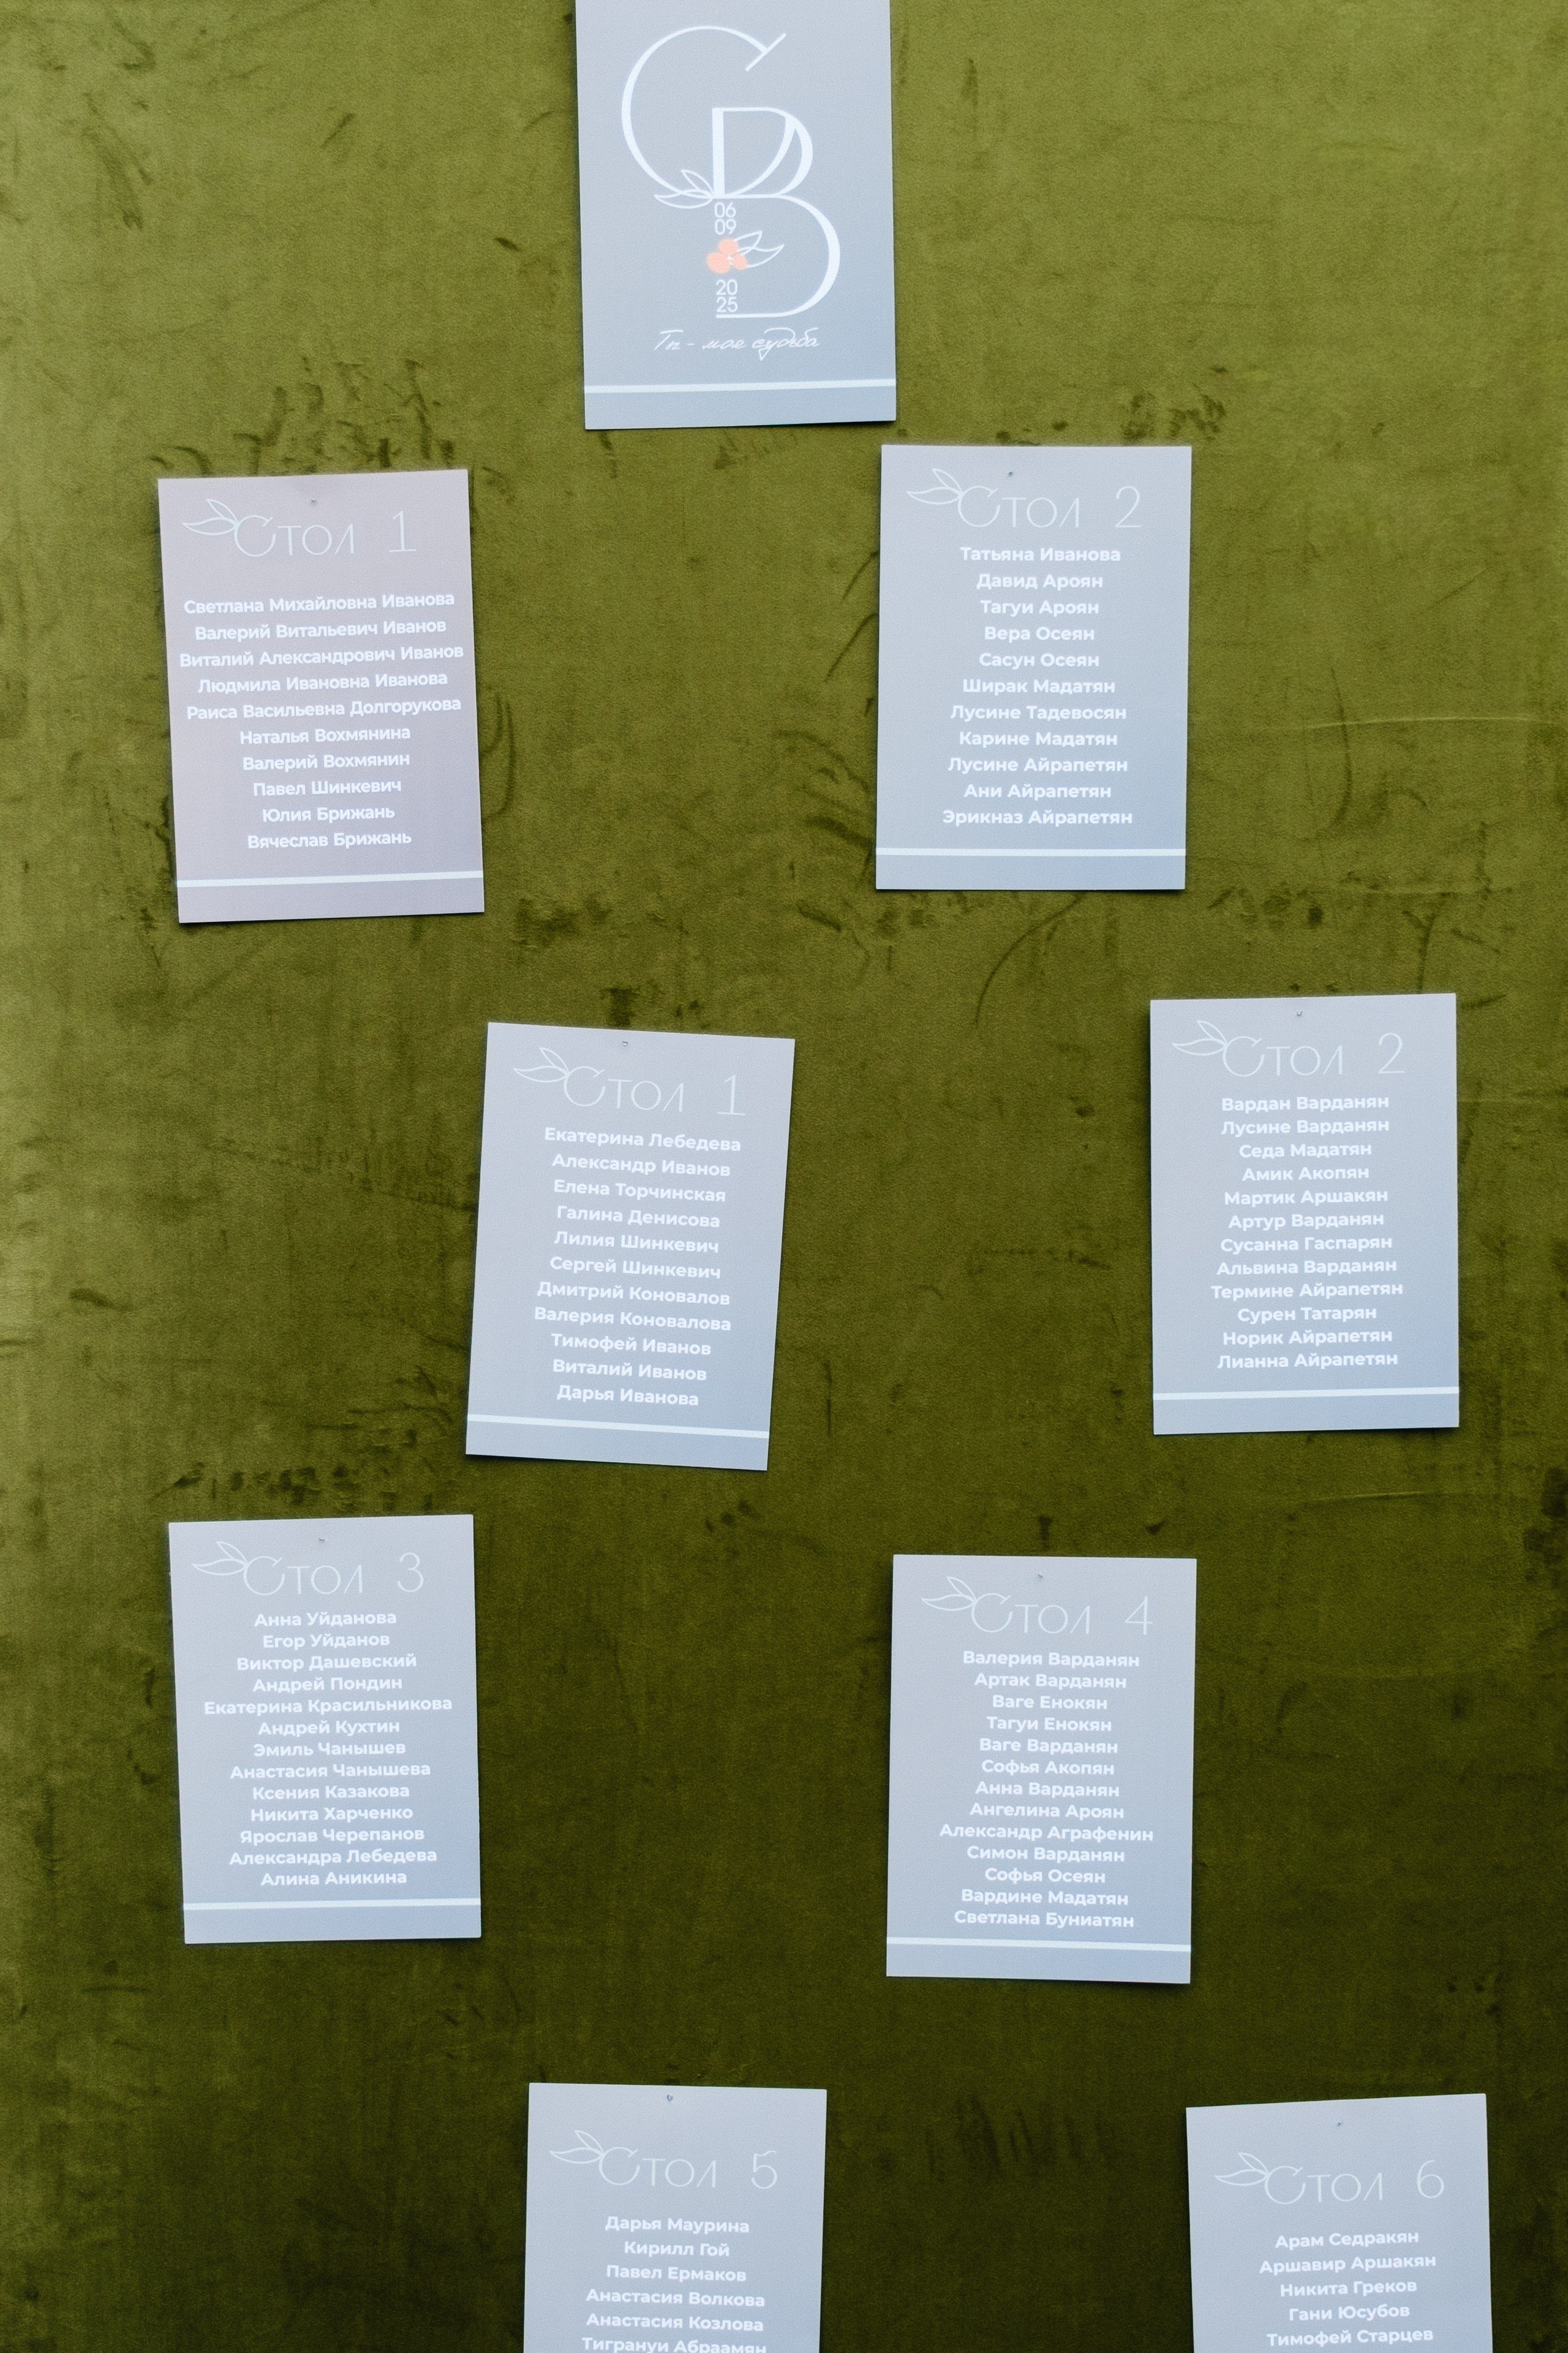 СВ
06
09
20
25
Ты - моя судьба
Стол 1
Светлана Михайловна Иванова
Валерий Витальевич Иванов
Виталий Александрович Иванов
Людмила Ивановна Иванова
Раиса Васильевна Долгорукова
Наталья Вохмянина
Валерий Вохмянин
Павел Шинкевич
Юлия Брижань
Вячеслав Брижань
Стол 2
Татьяна Иванова
Давид Ароян
Тагуи Ароян
Вера Осеян
Сасун Осеян
Ширак Мадатян
Лусине Тадевосян
Карине Мадатян
Лусине Айрапетян
Ани Айрапетян
Эрикназ Айрапетян
Стол 1
Екатерина Лебедева
Александр Иванов
Елена Торчинская
Галина Денисова
Лилия Шинкевич
Сергей Шинкевич
Дмитрий Коновалов
Валерия Коновалова
Тимофей Иванов
Виталий Иванов
Дарья Иванова
Стол 2
Вардан Варданян
Лусине Варданян
Седа Мадатян
Амик Акопян
Мартик Аршакян
Артур Варданян
Сусанна Гаспарян
Альвина Варданян
Термине Айрапетян
Сурен Татарян
Норик Айрапетян
Лианна Айрапетян
Стол 3
Анна Уйданова
Егор Уйданов
Виктор Дашевский
Андрей Пондин
Екатерина Красильникова
Андрей Кухтин
Эмиль Чанышев
Анастасия Чанышева
Ксения Казакова
Никита Харченко
Ярослав Черепанов
Александра Лебедева
Алина Аникина
Стол 4
Валерия Варданян
Артак Варданян
Ваге Енокян
Тагуи Енокян
Ваге Варданян
Софья Акопян
Анна Варданян
Ангелина Ароян
Александр Аграфенин
Симон Варданян
Софья Осеян
Вардине Мадатян
Светлана Буниатян
Стол 5
Дарья Маурина
Кирилл Гой
Павел Ермаков
Анастасия Волкова
Анастасия Козлова
Тигрануи Абраамян
Стол 6
Арам Седракян
Аршавир Аршакян
Никита Греков
Гани Юсубов
Тимофей Старцев